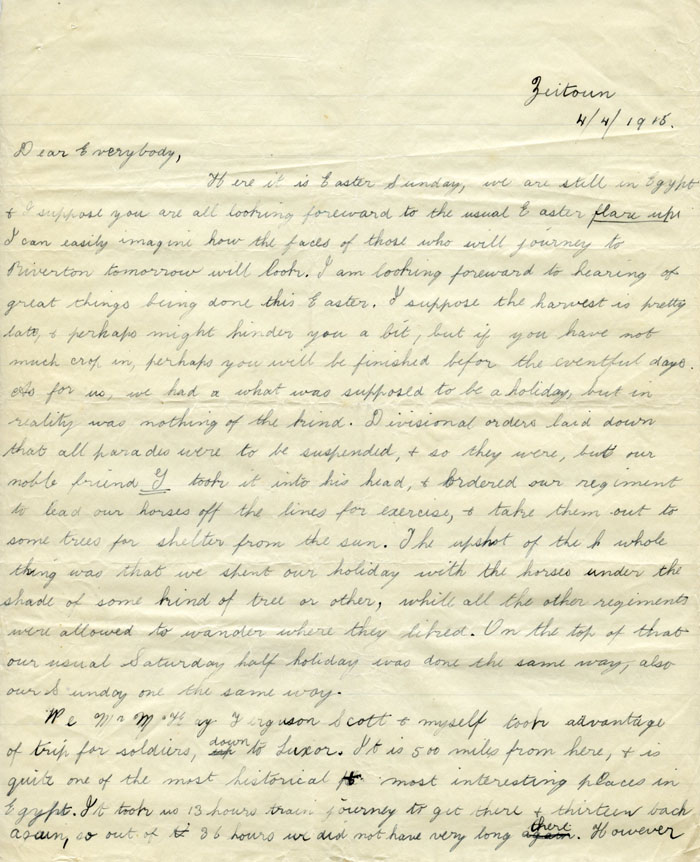 Zeitoun
4/4/1915.
Dear Everybody,
Here it is Easter Sunday, we are still in Egypt
& I suppose you are all looking foreward to the usual Easter flare up.
I can easily imagine how the faces of those who will journey to
Riverton tomorrow will look. I am looking foreward to hearing of
great things being done this Easter. I suppose the harvest is pretty
late, & perhaps might hinder you a bit, but if you have not
much crop in, perhaps you will be finished befor the eventful days.
As for us, we had a what was supposed to be a holiday, but in
reality was nothing of the kind. Divisional orders laid down
that all parades were to be suspended, & so they were, but our
noble friend Y took it into his head, & ordered our regiment
to lead our horses off the lines for exercise, & take them out to
some trees for shelter from the sun. The upshot of the h whole
thing was that we spent our holiday with the horses under the
shade of some kind of tree or other, while all the other regiments
were allowed to wander where they liked. On the top of that
our usual Saturday half holiday was done the same way, also
our Sunday one the same way.
We Mr McKay Ferguson Scott & myself took advantage
of trip for soldiers, down to Luxor. It is 500 miles from here, & is
quite one of the most historical & most interesting places in
Egypt. It took us 13 hours train journey to get there & thirteen back
again, so out of 36 hours we did not have very long again there. However